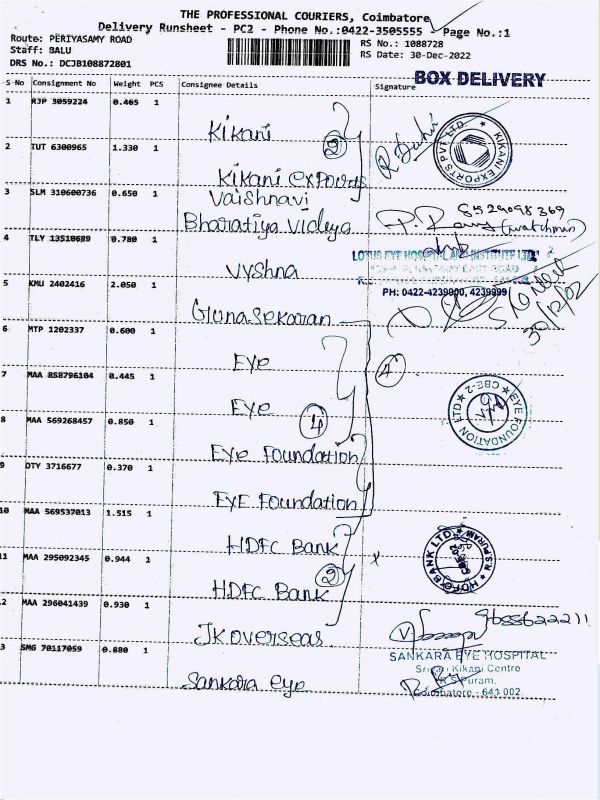 THE PROFESSIONAL COURIERS, Coimbatore
Delivery Runsheet - PC2 - Phone No.:0422-3505555 - Page No.:1
Route: PERIYASAMY ROAD
RS No.: 1088728
Staff: BALU
RS Date: 30-Dec-2022
DRS No.: DCJB108872801
BOX DELIVERY
S No Consignment No Weight PCS Consignee Details Signature
1 RJP 3059224 0.465 1
Kikani
2
KIKANI EXPORTS PVT LTD
2 TUT 6300965 1.330 1
Kikani exports
3 SLM 310600736 0.650 1
Vaishnavi
8529098369
Bharatiya Vidya
(watchman)
4 TLY 13510689 0.780 1
LOTUS EYE HOSPITAL AND INSTITUTE LTD
Vyshna
5 KMU 2402416 2.050 1
PH: 0422-4239900, 4239999
Gunasekaran
30/12/02
6 MTP 1202337 0.600 1
Eye
4
7 MAA 858796104 0.445 1
EYE FOUNDATION LTD CBE-2
Eye
4
8 MAA 569268457 0.850 1
Eye Foundation
9 OTY 3716677 0.370 1
EYE Foundation
10 MAA 569537013 1.515 1
HDFC Bank
HDFC BANK LTD R.S.PURAM
11 MAA 295092345 0.944 1
2
HDFC Bank
12 MAA 296041439 0.930 1
9655622211
JK overseas
3 SMG 70117059 0.880 1
SANKARA EYE HOSPITAL
Kikani Centre
R S Puram,
Sankara eye
Coimbatore - 641 002.